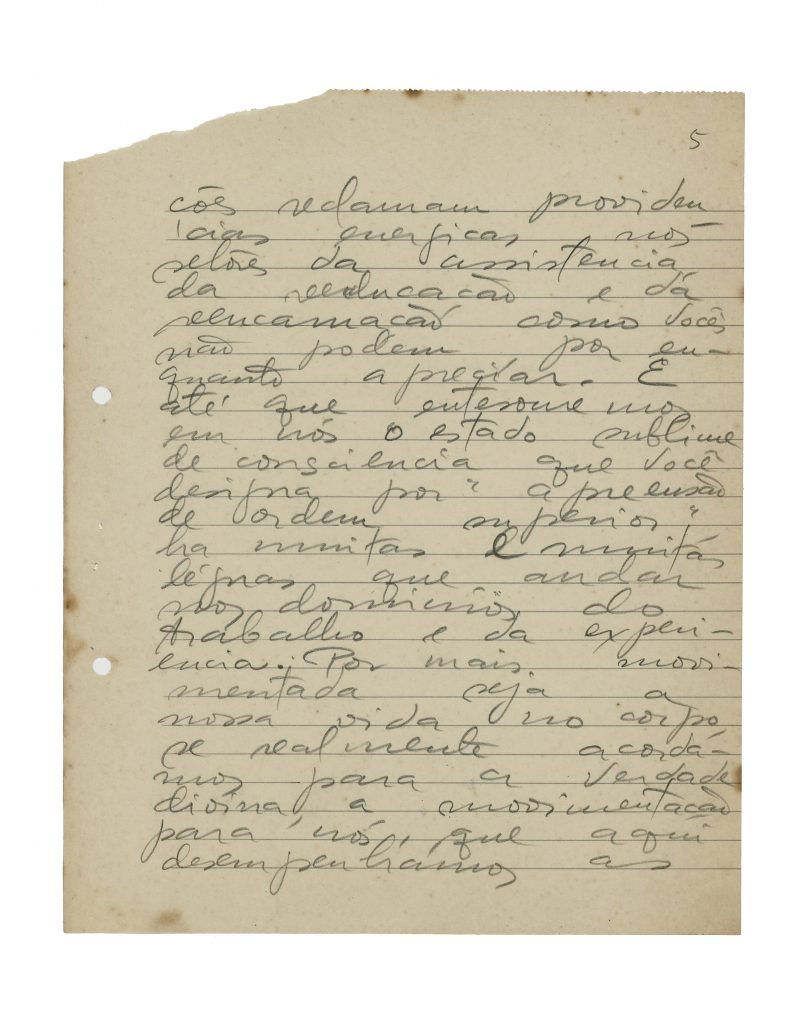 5
ções reclamam providen
cias energicas nos
setôres da assistencia
da reeducação e da
reencarnação como vocês
não podem por en-
quanto apreciar. E
até que entesouremos
em nós o estado sublime
de consciencia que você
designa por "apreensão
de ordem superior",
ha muitas e muitas
léguas que andar
nos dominios do
trabalho e da experi-
encia. Por mais movi-
mentada seja a
nossa vida no corpo
se realmente acordá-
mos para a verdade
divina a movimentação
para nós, que aqui
desempenhámos as